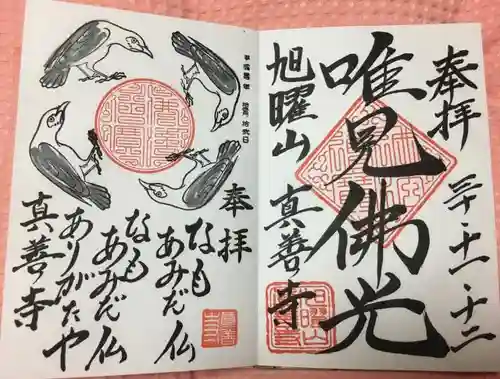 奉拝
唯見佛光
旭曜山
真善寺
三十・十一・十二
奉拝
なもあみだ仏
なもあみだ仏
ありがたや
真善寺